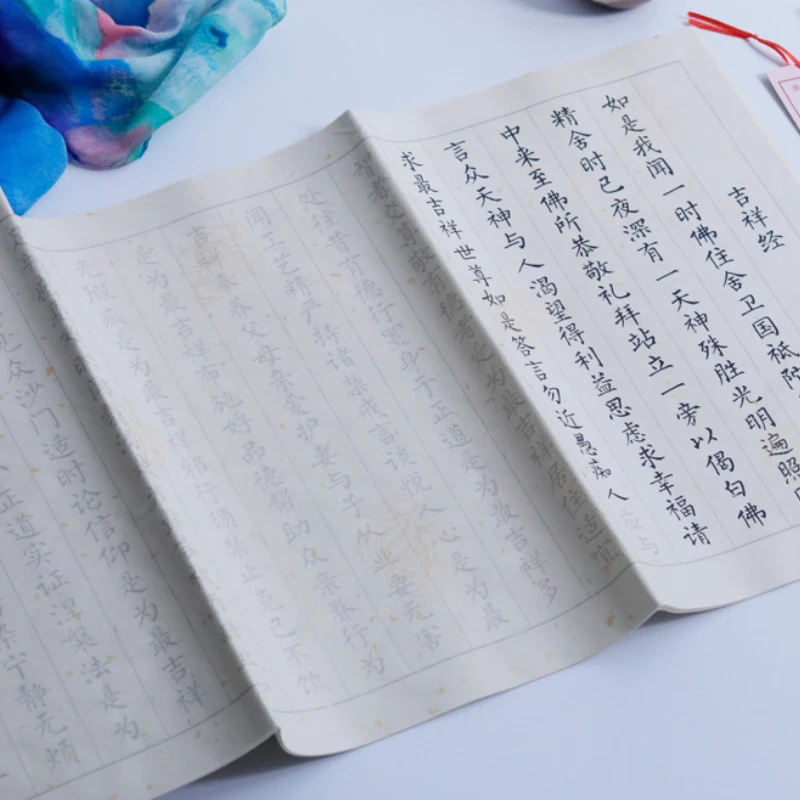 吉祥经
如是我闻一时佛住舍卫国祇陀
精舍时已夜深有一天神殊胜光明遍照
中来至佛所恭敬礼拜站立一旁以偈白佛
言众天神与人渴望得利益思虑求幸福请
求最吉祥世尊如是答言勿近愚痴人应与
智者交尊敬有德者是为最吉祥居住适宜
处往昔有德行置身于正道是为最吉祥多
闻工艺精严持诸禁戒言谈悦人心是为最
吉祥奉养父母亲爱护妻与子从业要无害
是为最吉祥布施好品德帮助众亲眷行为
无瑕疵是为最吉祥邪行须禁止克己不饮
见众沙门适时论信仰是为最吉祥
正道实证涅槃法是为
宁静无烦